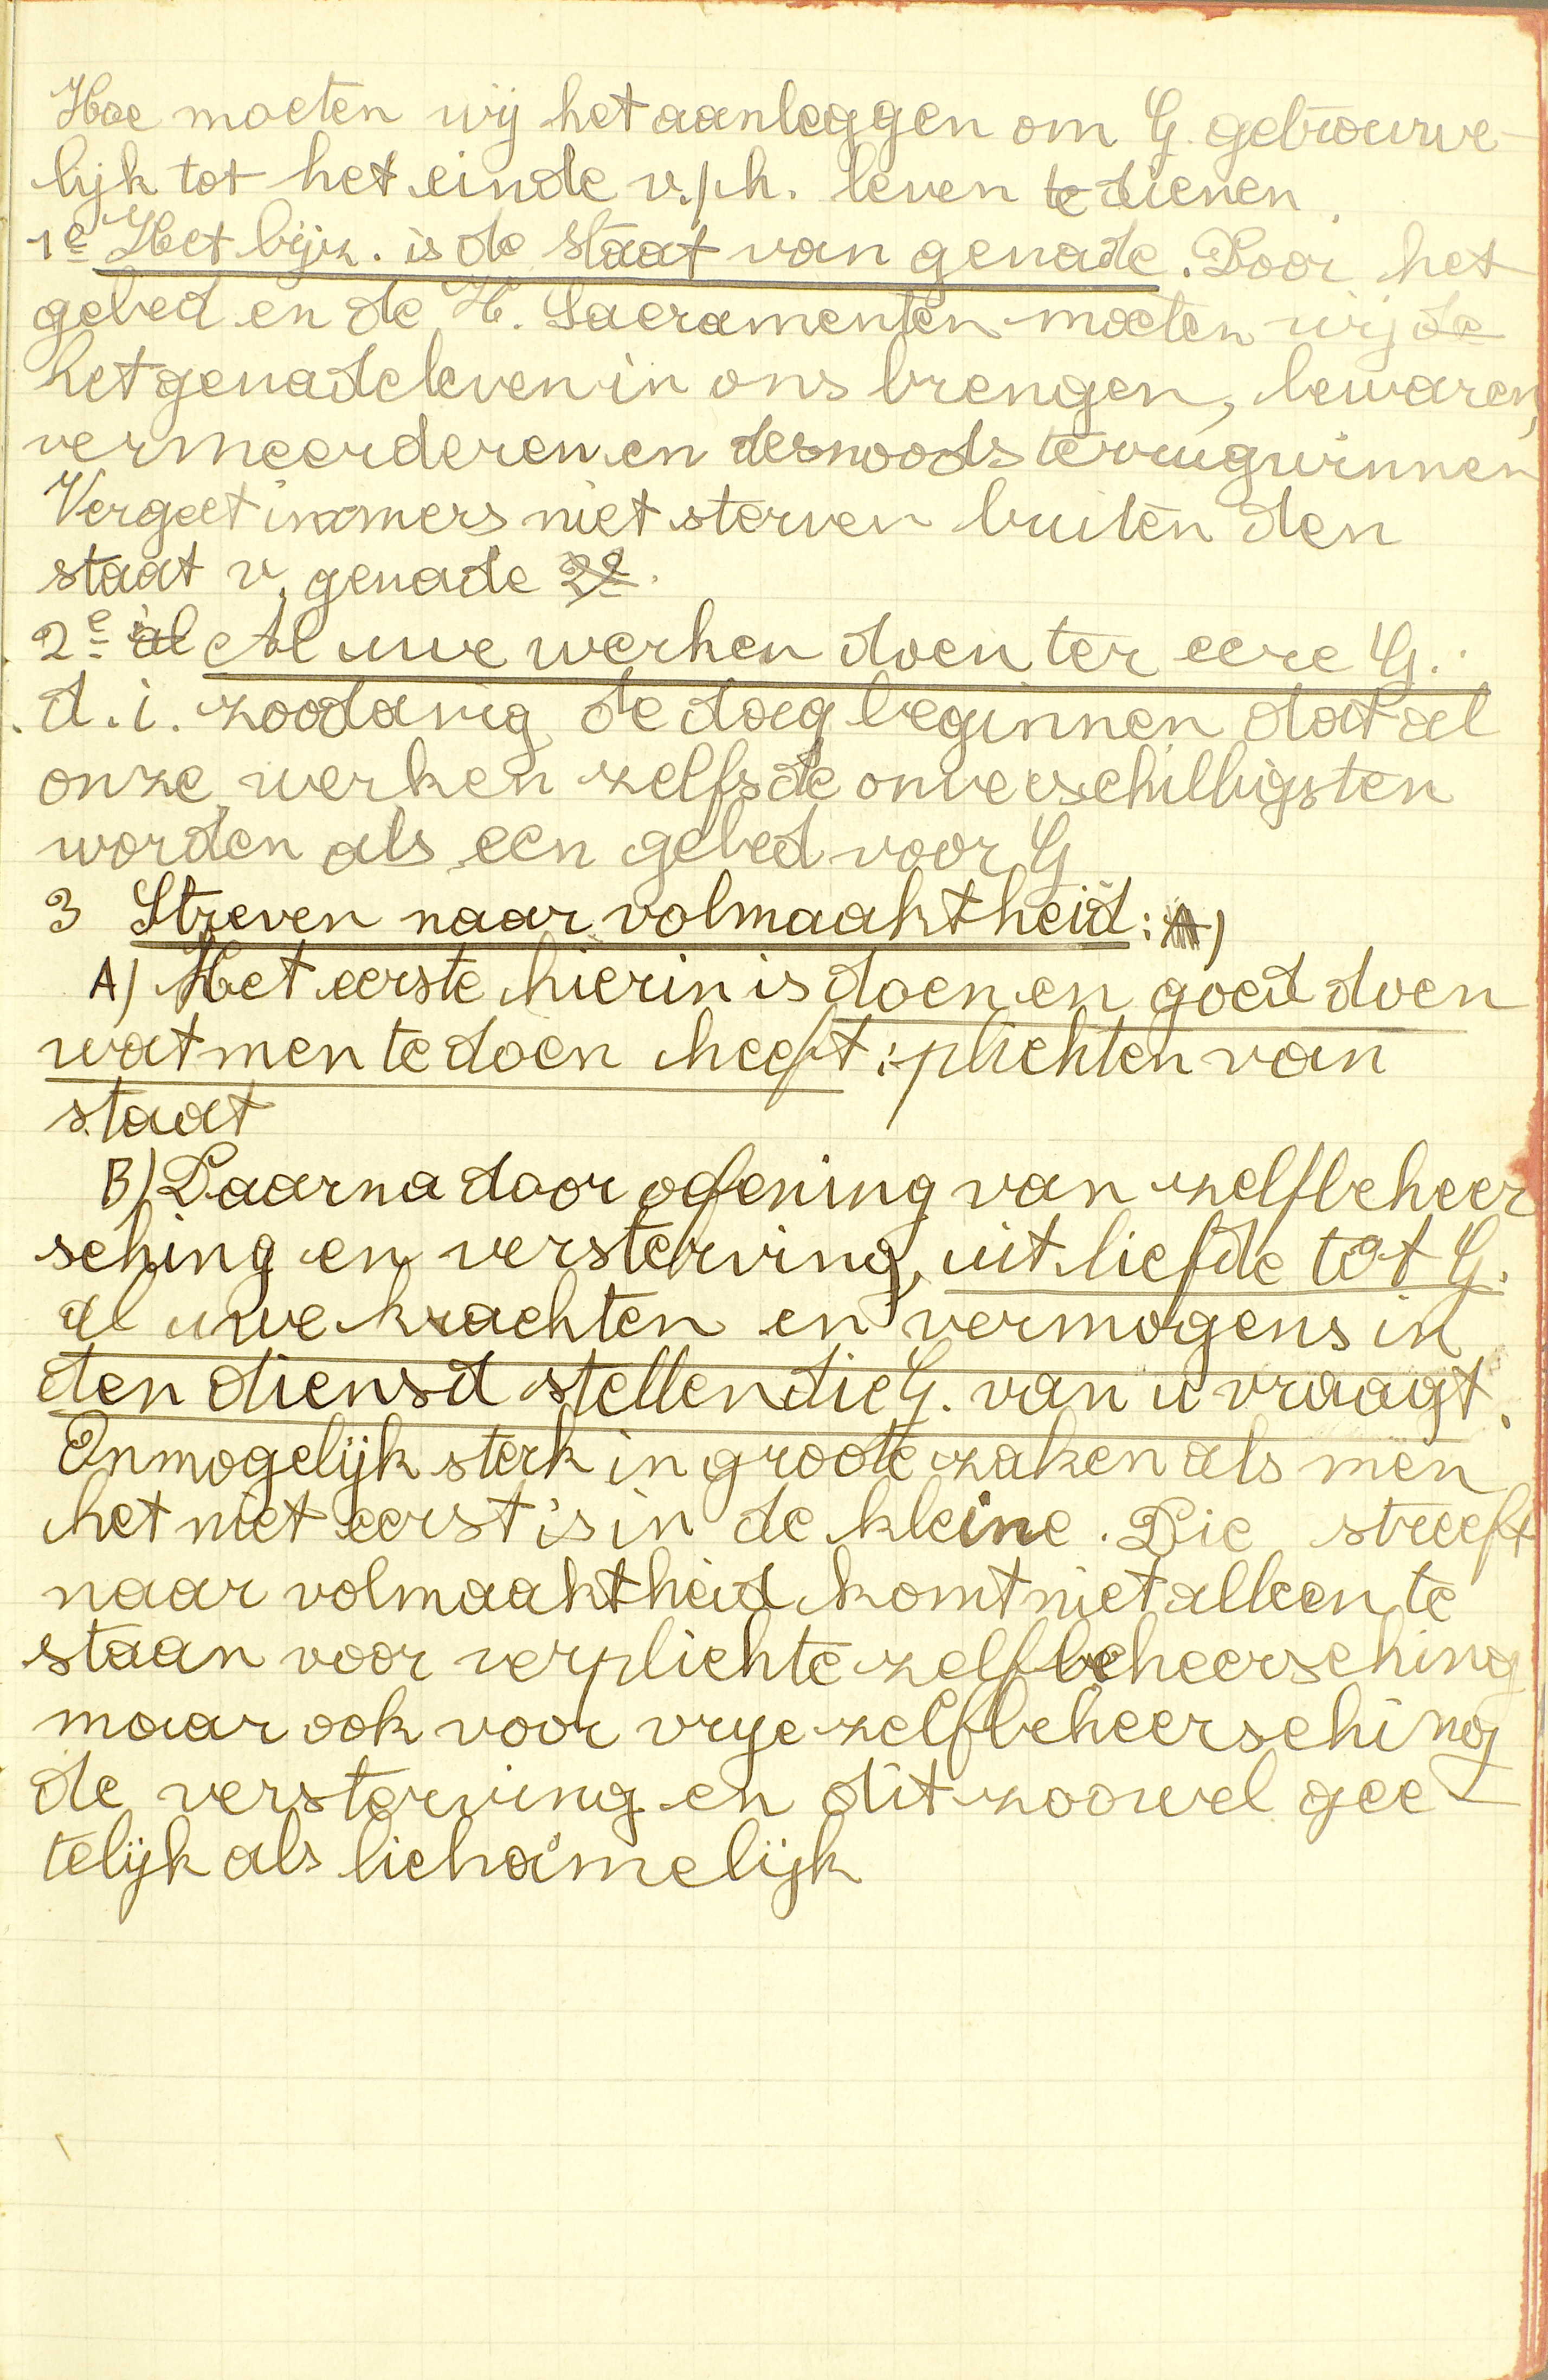 Hoe moeten wij het aanleggen om G. getrouwe-
lijk tot het einde v./h. leven te dienen.
1e Het bijz. is de staat van genade. Door het
gebed en de H. Sacramenten moeten wij de
het genadeleven in ons brengen, bewaren,
vermeerderen en desnoods terugwinnen
Vergeet immers niet sterven buiten den
staat v. genade 2e.
2e al Al uwe werken doen ter eere G.
d.i. zoodanig de dag beginnen dat al
onze werken zelfs de onverschilligsten
worden als een gebed voor G
3 Streven naar volmaaktheid: A)
A) Het eerste hierin is doen en goed doen
wat men te doen heeft : plichten van
staat
B) Daarna door oefening van zelfbeheer
sching en versterving, uit liefde tot G.
al uwe krachten en vermogens in
den diensd stellen die G. van u vraagt.
Onmogelijk sterk in groote zaken als men
het niet eerst is in de kleine. Die streeft
naar volmaaktheid komt niet alleen te
staan voor verplichte zelfbeheersching
maar ook voor vrye zelfbeheersching
de versterving en dit zoowel gee-
telijk als lichamelijk